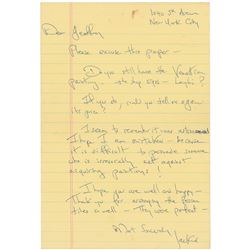 1040 5th Avenue
New York City
Dear Jeffrey
Please excuse this paper -
Do you still have the Venetian
painting - the big eyes -
If you do, could you tell me again
its price?
I seem to remember it was
I hope I am mistaken - because
it is difficult to persuade someone
who is ironically not against
acquiring paintings!
I hope you are well and happy -
Thank you for arranging the
tiles so well - They were perfect -
Most Sincerely
Jackie